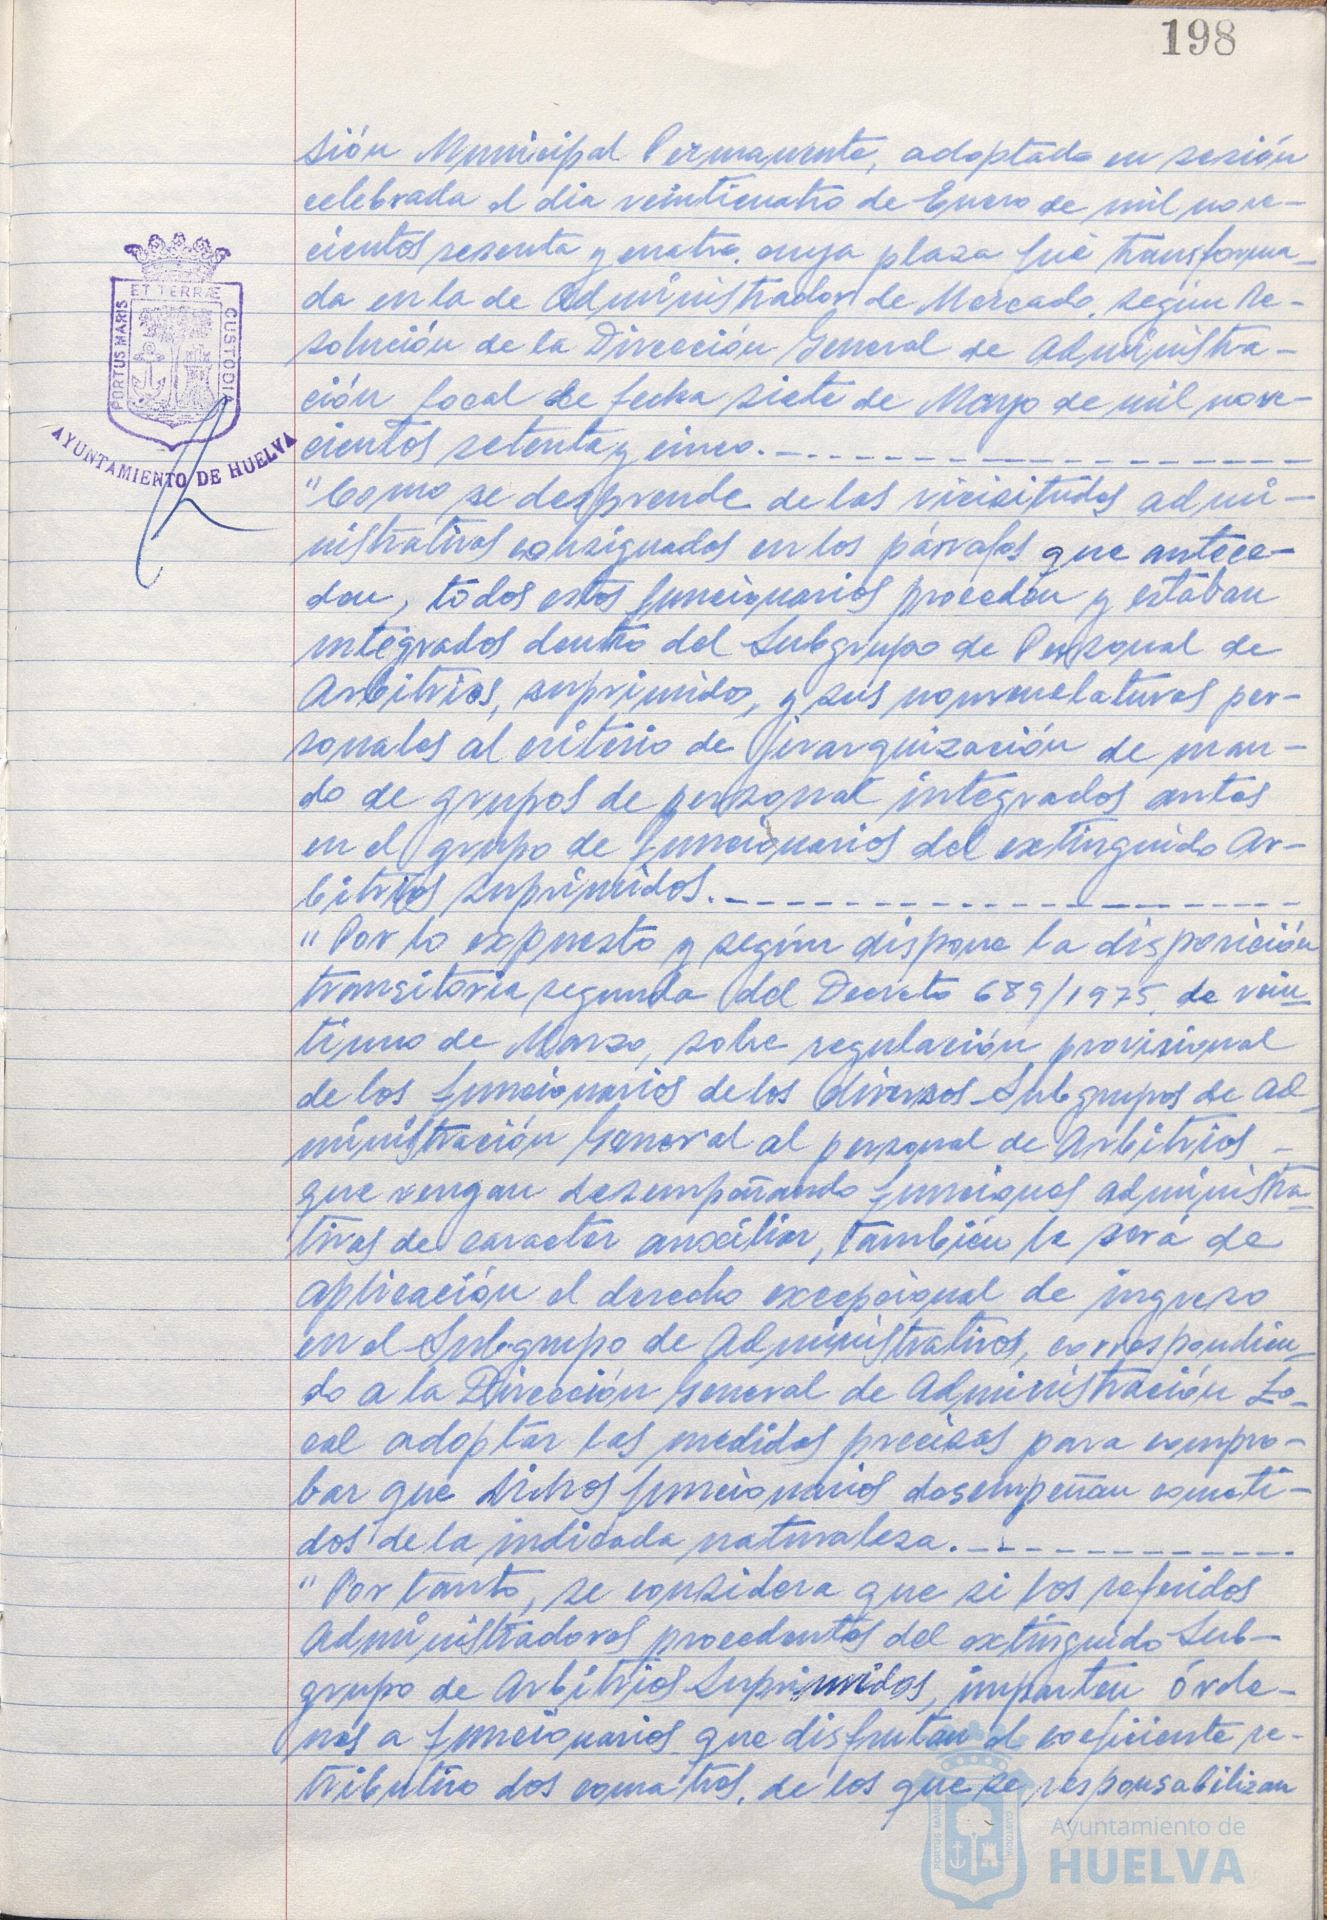 198
sión Municipal Permanente, adoptada en sesión
celebrada el dia veinticuatro de Enero de mil nove-
cientos sesenta y cuatro, cuya plaza fué transforma-
da en la de Administrador de Mercado, según Re-
solución de la Dirección General de Administra-
ción Local de fecha siete de Mayo de mil nove-
cientos setenta y cinco.
"Como se desprende de las vicisitudes admi-
nistrativas consignadas en los párrafos que antece-
den, todos estos funcionarios proceden y estaban
integrados dentro del Subgrupo de Personal de
Arbitrios, suprimido, y sus nomenclaturas per-
sonales al criterio de jerarquización de man-
do de grupos de personal integrados antes
en el grupo de funcionarios del extinguido Ar-
bitrios suprimidos.
"Por lo expuesto y según dispone la disposición
transitoria segunda del Decreto 689/1975, de vein-
tiuno de Marzo, sobre regulación provisional
de los funcionarios de los diversos Subgrupos de Ad-
ministración General al personal de Arbitrios -
que vengan desempeñando funciones administra-
tivas de caracter auxiliar, también le será de
aplicación el derecho excepcional de ingreso
en el Subgrupo de Administrativos, correspondien-
do a la Dirección General de Administración Lo-
cal adoptar las medidas precisas para compro-
bar que dichos funcionarios desempeñan cometi-
dos de la indicada naturaleza.
"Por tanto, se considera que si los referidos
Administradores procedentes del extinguido Sub-
grupo de Arbitrios Suprimidos, imparten órde-
nes a funcionarios que disfrutan el coeficiente re-
tributivo dos coma tres, de los que se responsabilizan
ET TERRÆ
PORTUS MARIS
CUSTODIA
AYUNTAMIENTO DE HUELVA
Ayuntamiento de
HUELVA